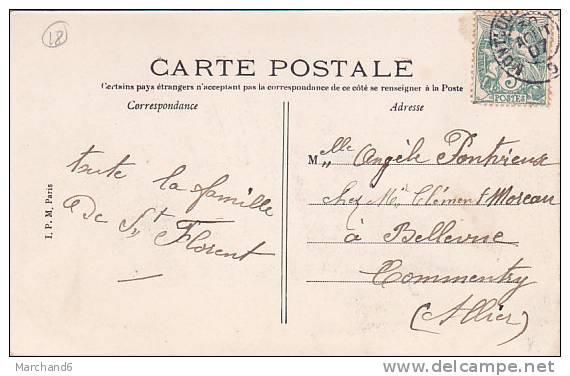 18
CARTE POSTALE
Certains pays étrangers n'acceptant pas la correspondance de ce côté se renseigner à la Poste
Correspondance
Adresse
5
POSTES
toute la famille
de St Florent
I. P. M, Paris
Melle Angèle
chez Mr Clément Moreau
à Bellevue
Commentry
(Allier)
Marchand6
delcampe.net